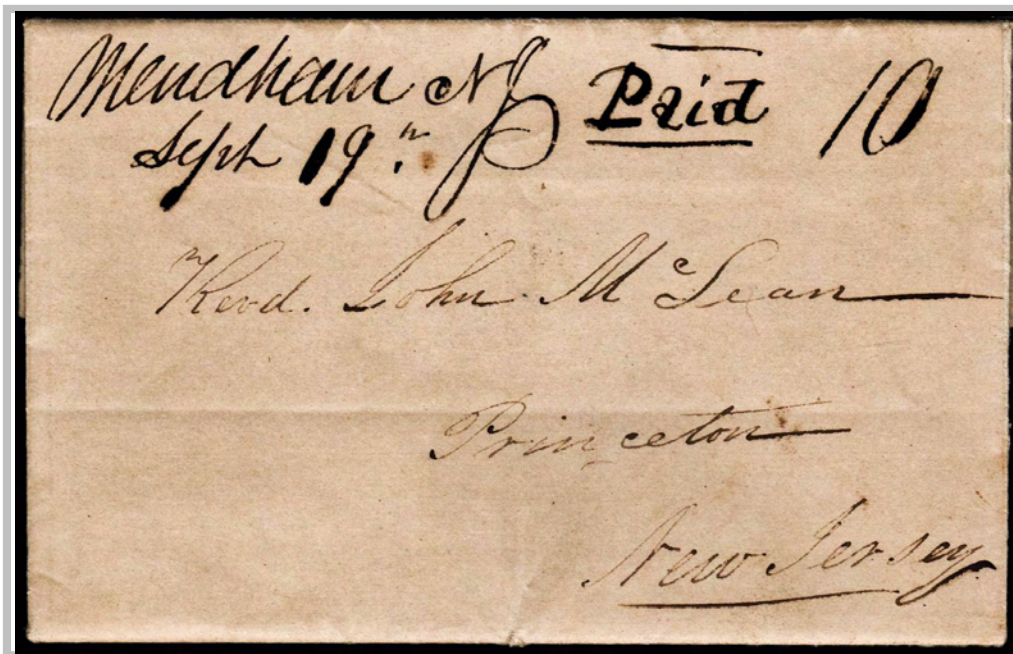 Mendham NJ Paid 10
Sept 19th
Revd. John McLean
Princeton
New Jersey